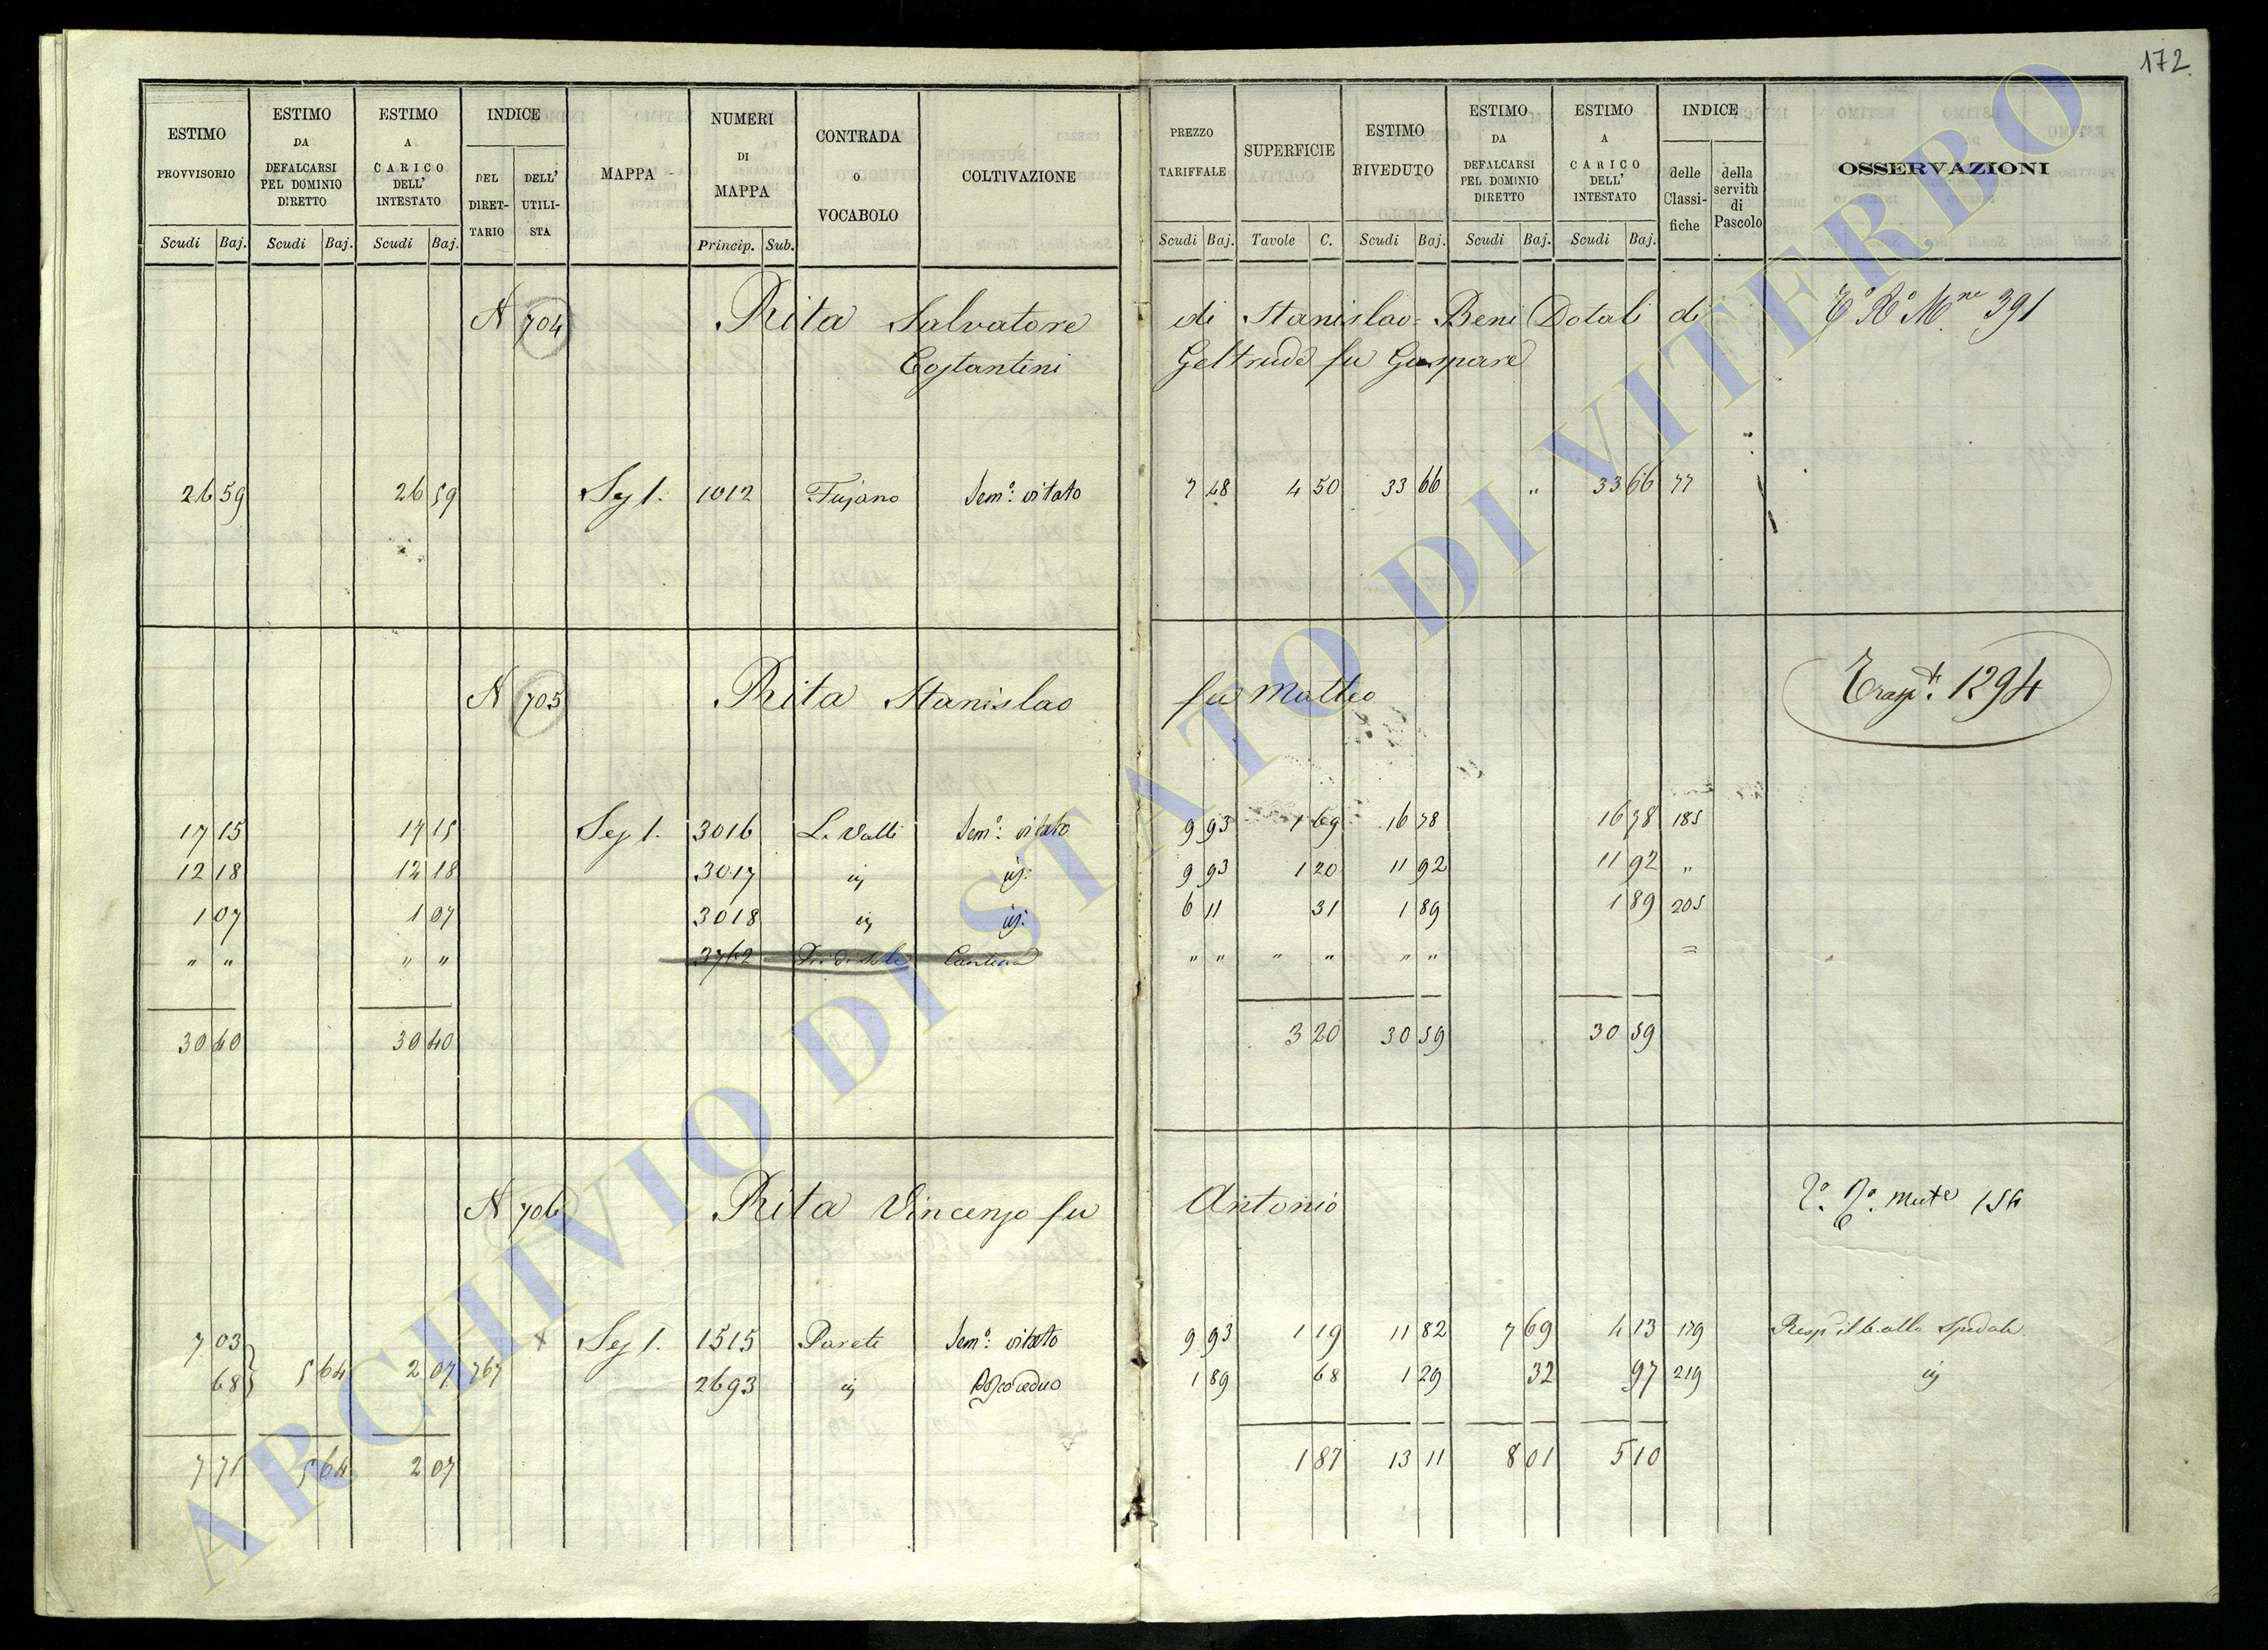 172.
ESTIMO PROVVISORIO Scudi Baj. ESTIMO DA DEFALCARSI PEL DOMINIO DIRETTO Scudi Baj. ESTIMO A CARICO DELL' INTESTATO Scudi Baj. INDICE DEL DIRET-TARIO DELL' UTILI-STA MAPPA NUMERI DI MAPPA Princip. Sub. CONTRADA O VOCABOLO COLTIVAZIONE PREZZO TARIFFALE Scudi Baj. SUPERFICIE Tavole C. ESTIMO RIVEDUTO Scudi Baj. ESTIMO DA DEFALCARSI PEL DOMINIO DIRETTO Scudi Baj. ESTIMO A CARICO DELL' INTESTATO Scudi Baj. INDICE delle Classi-fiche della servitù di Pascolo OSSERVAZIONI
N 704 Rita Salvatore di Stanislao = Beni Dotali di 391
Costantini Geltrude fu Gaspare
26 59 26 59 Sez 1. 1012 Fujano Sem.o vitato 7 48 4 50 33 66 " 33 66 77
N 705 Rita Stanislao fu Matteo Trasp.t 1294
17 15 17 15 Sez 1. 3016 Le Valli Sem.o vitato 9 93 1 69 16 78 16 78 185
12 18 12 18 3017 id id. 9 93 1 20 11 92 11 92 "
1 07 1 07 3018 id id. 6 11 31 1 89 1 89 205
" " " " 3762 Cantina " " " " " " =
30 40 30 40 3 20 30 59 30 59
N 706 Rita Vincenzo fu Antonio
7 03 x Sez 1. 1515 Parete Sem.o vitato 9 93 1 19 11 82 7 69 4 13 179 Resp ib allo Spedale
68 5 64 2 07 767 2693 id Bosco ceduo 1 89 68 1 29 32 97 219 id
7 71 5 64 2 07 1 87 13 11 8 01 5 10
ARCHIVIO DI STATO DI VITERBO